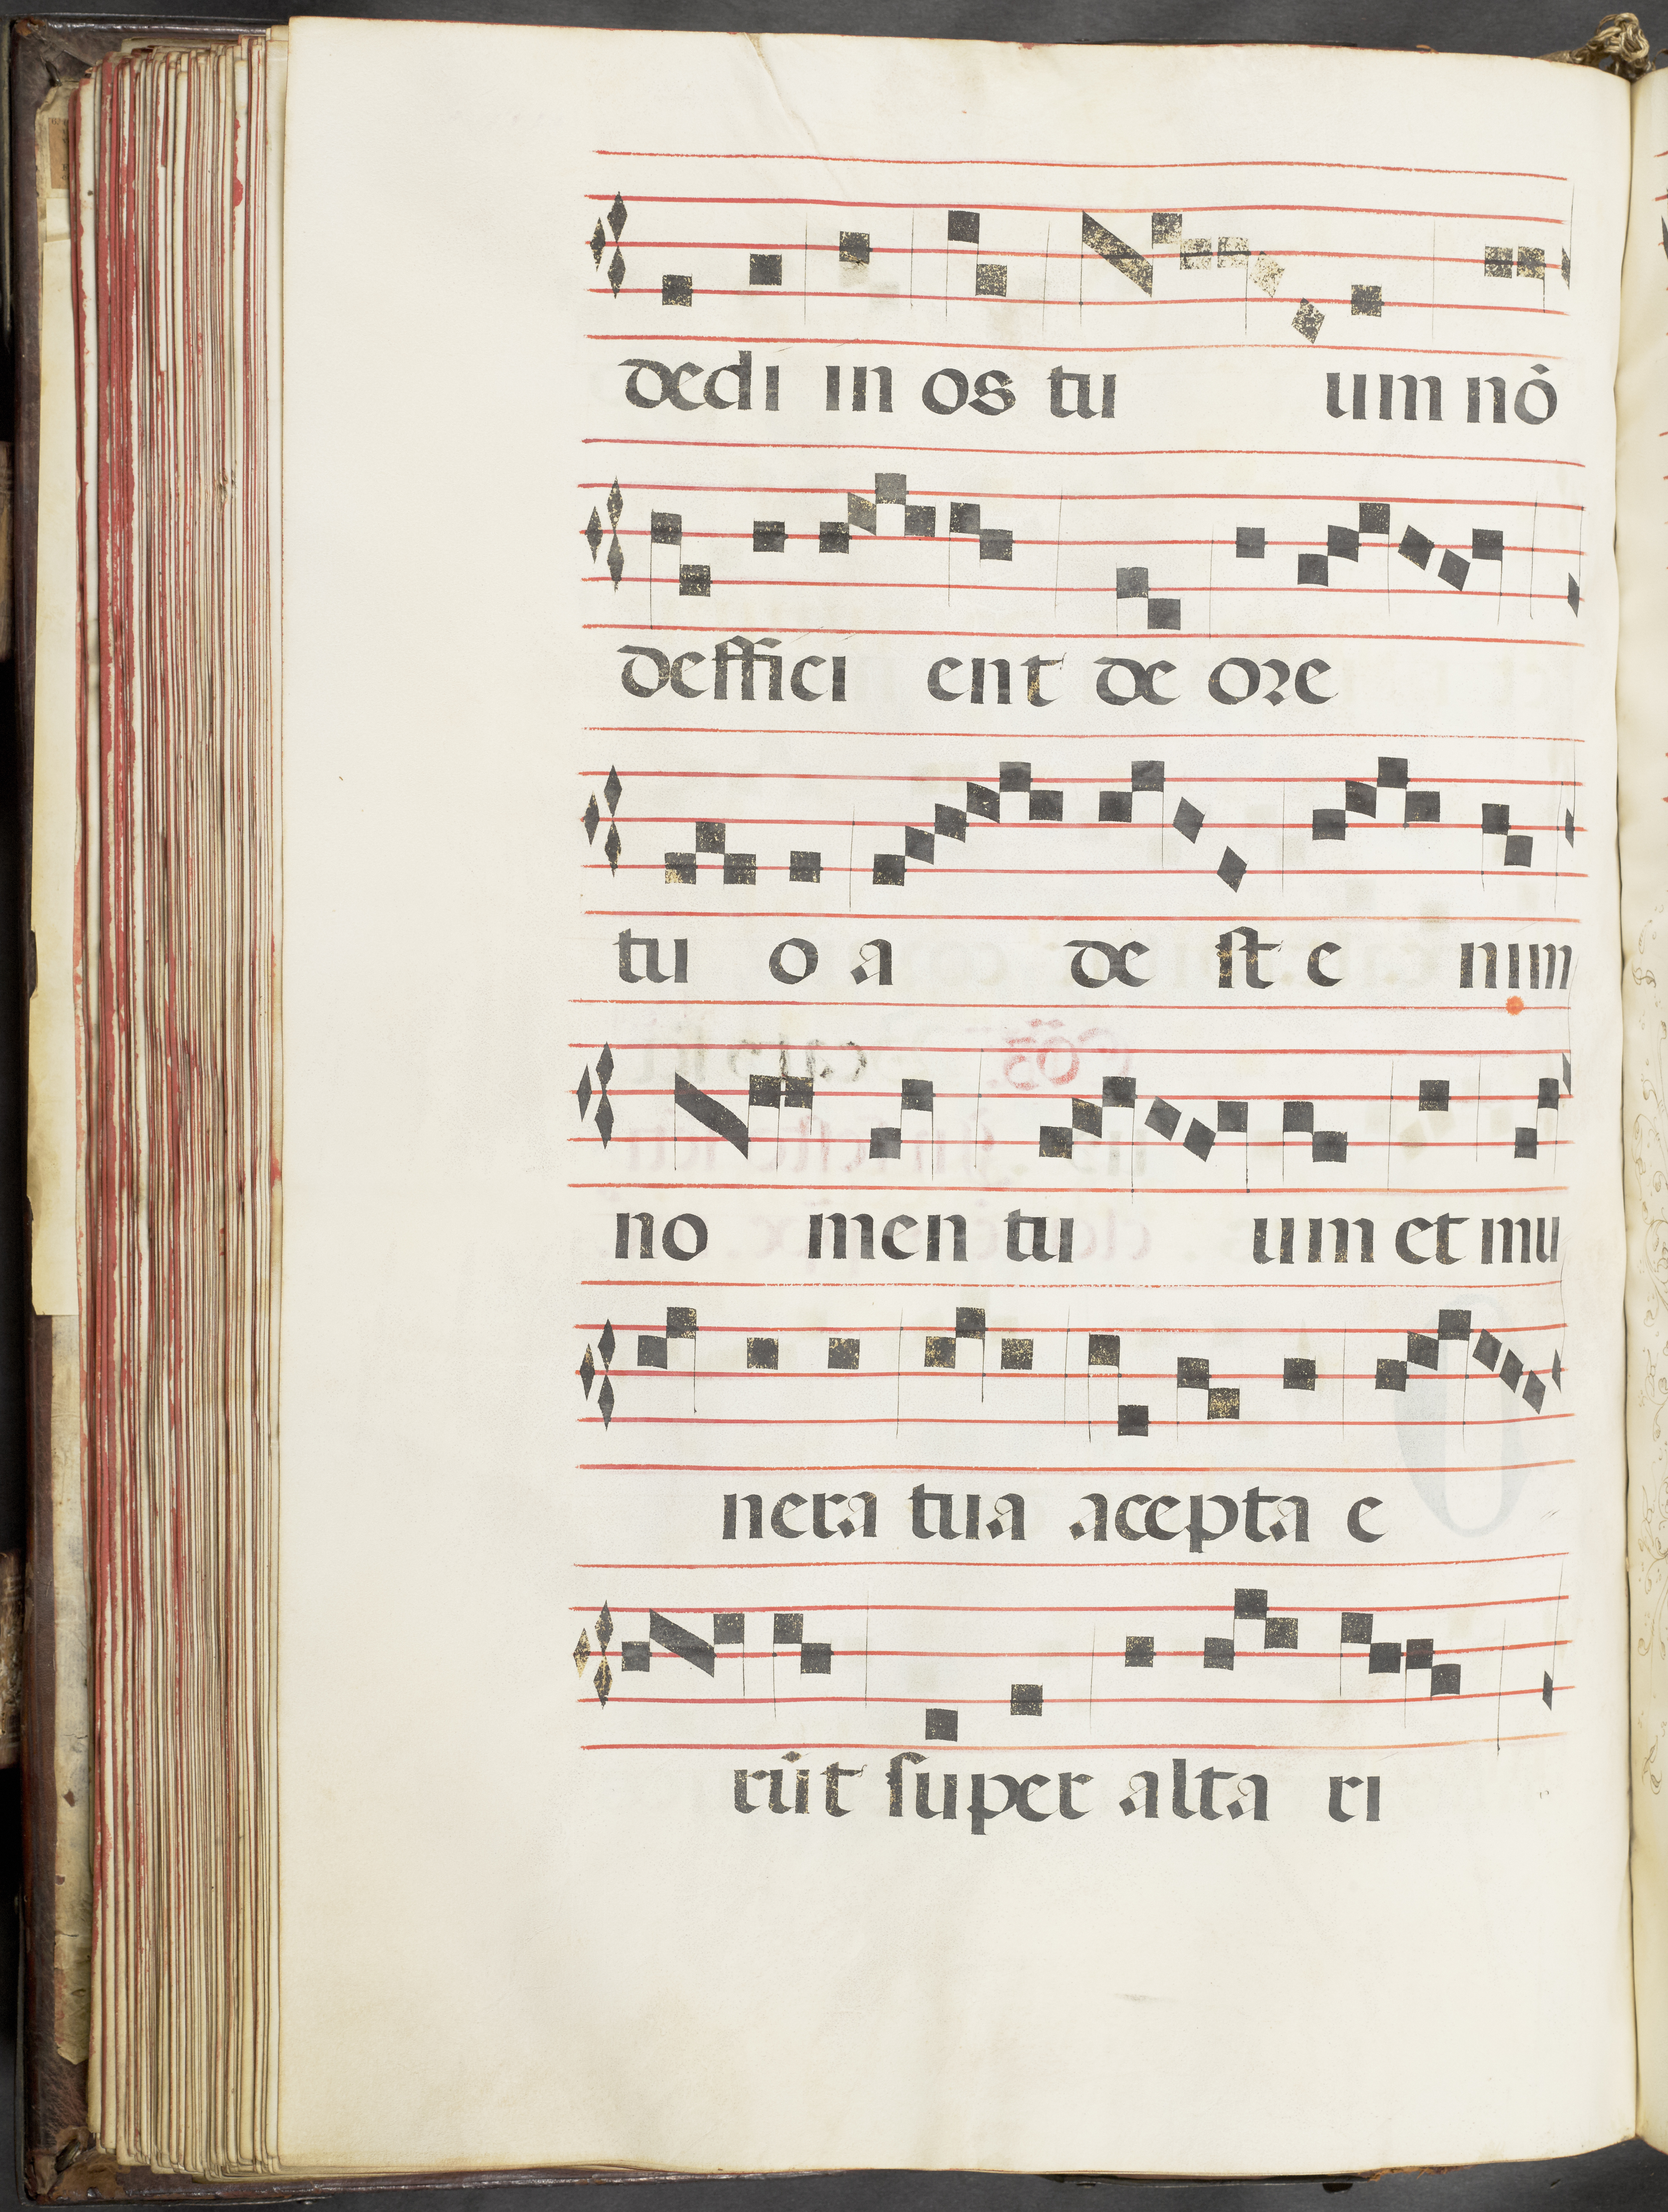 dedi in os tu um nō
deffici ent de ore
tu o a de st e nim
no men tu um et mu
nera tua acepta e
rūt super alta ri